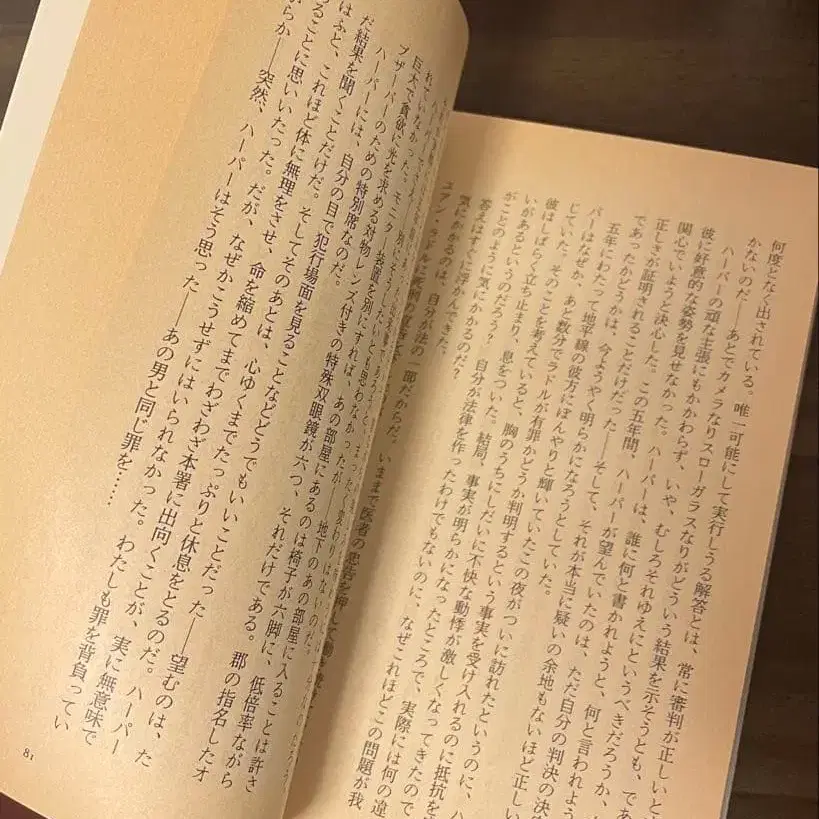 何度となく出されている。唯一可能にして実行しうる解答とは、常に審判が正しいと
かないのだ——あとでカメラなりスローガラスなりがどういう結果を示そうとも、であ
ハーパーの頑な主張にもかかわらず、いや、むしろそれゆえにというべきだろうか、
彼に好意的な姿勢を見せなかった。ハーパーは、誰に何と書かれようと、何と言われよう
関心でいようと決心した。この五年間、ハーパーが望んでいたのは、ただ自分の判決の決
正しさが証明されることだけだった——そして、それが本当に疑いの余地もないほど正しい
であったかどうかは、今ようやく明らかになろうとしていた。
五年にわたって地平線の彼方にぼんやりと輝いていたこの夜がついに訪れたというのに、ハ
パーはなぜか、あと数分でラドルが有罪かどうか判明するという事実を受け入れるのに抵抗を
じていた。そのことを考えていると、胸のうちにしだいに不快な動悸が激しくなってきたので
彼はしばらく立ち止まり、息をついた。結局、事実が明らかになったところで、実際には何の違
いがあるというのだろう？　自分が法律を作ったわけでもないのに、なぜこれほどこの問題が我
がことのように気にかかるのだ？
答えはすぐに浮かんできた。
気にかかるのは、自分が法の一部だからだ。いままで医者の忠告を押して働き
ユアン・ラドルに死刑の宣告を
れていなかった。
巨大で貪欲に光を求める対物レンズ付きの特殊双眼鏡が六つ、それだけである。郡の指名したオ
ブザーバーのための特別席なのだ。
ハーパーには、自分の目で犯行場面を見ることなどどうでもいいことだった——望むのは、た
だ結果を聞くことだけだ。そしてそのあとは、心ゆくまでたっぷりと休息をとるのだ。ハーパー
はふと、これほど体に無理をさせ、命を縮めてまでわざわざ本署に出向くことが、実に無意味で
あることに思いいたった。だが、なぜかこうせずにはいられなかった。わたしも罪を背負ってい
からか——突然、ハーパーはそう思った——あの男と同じ罪を……
81